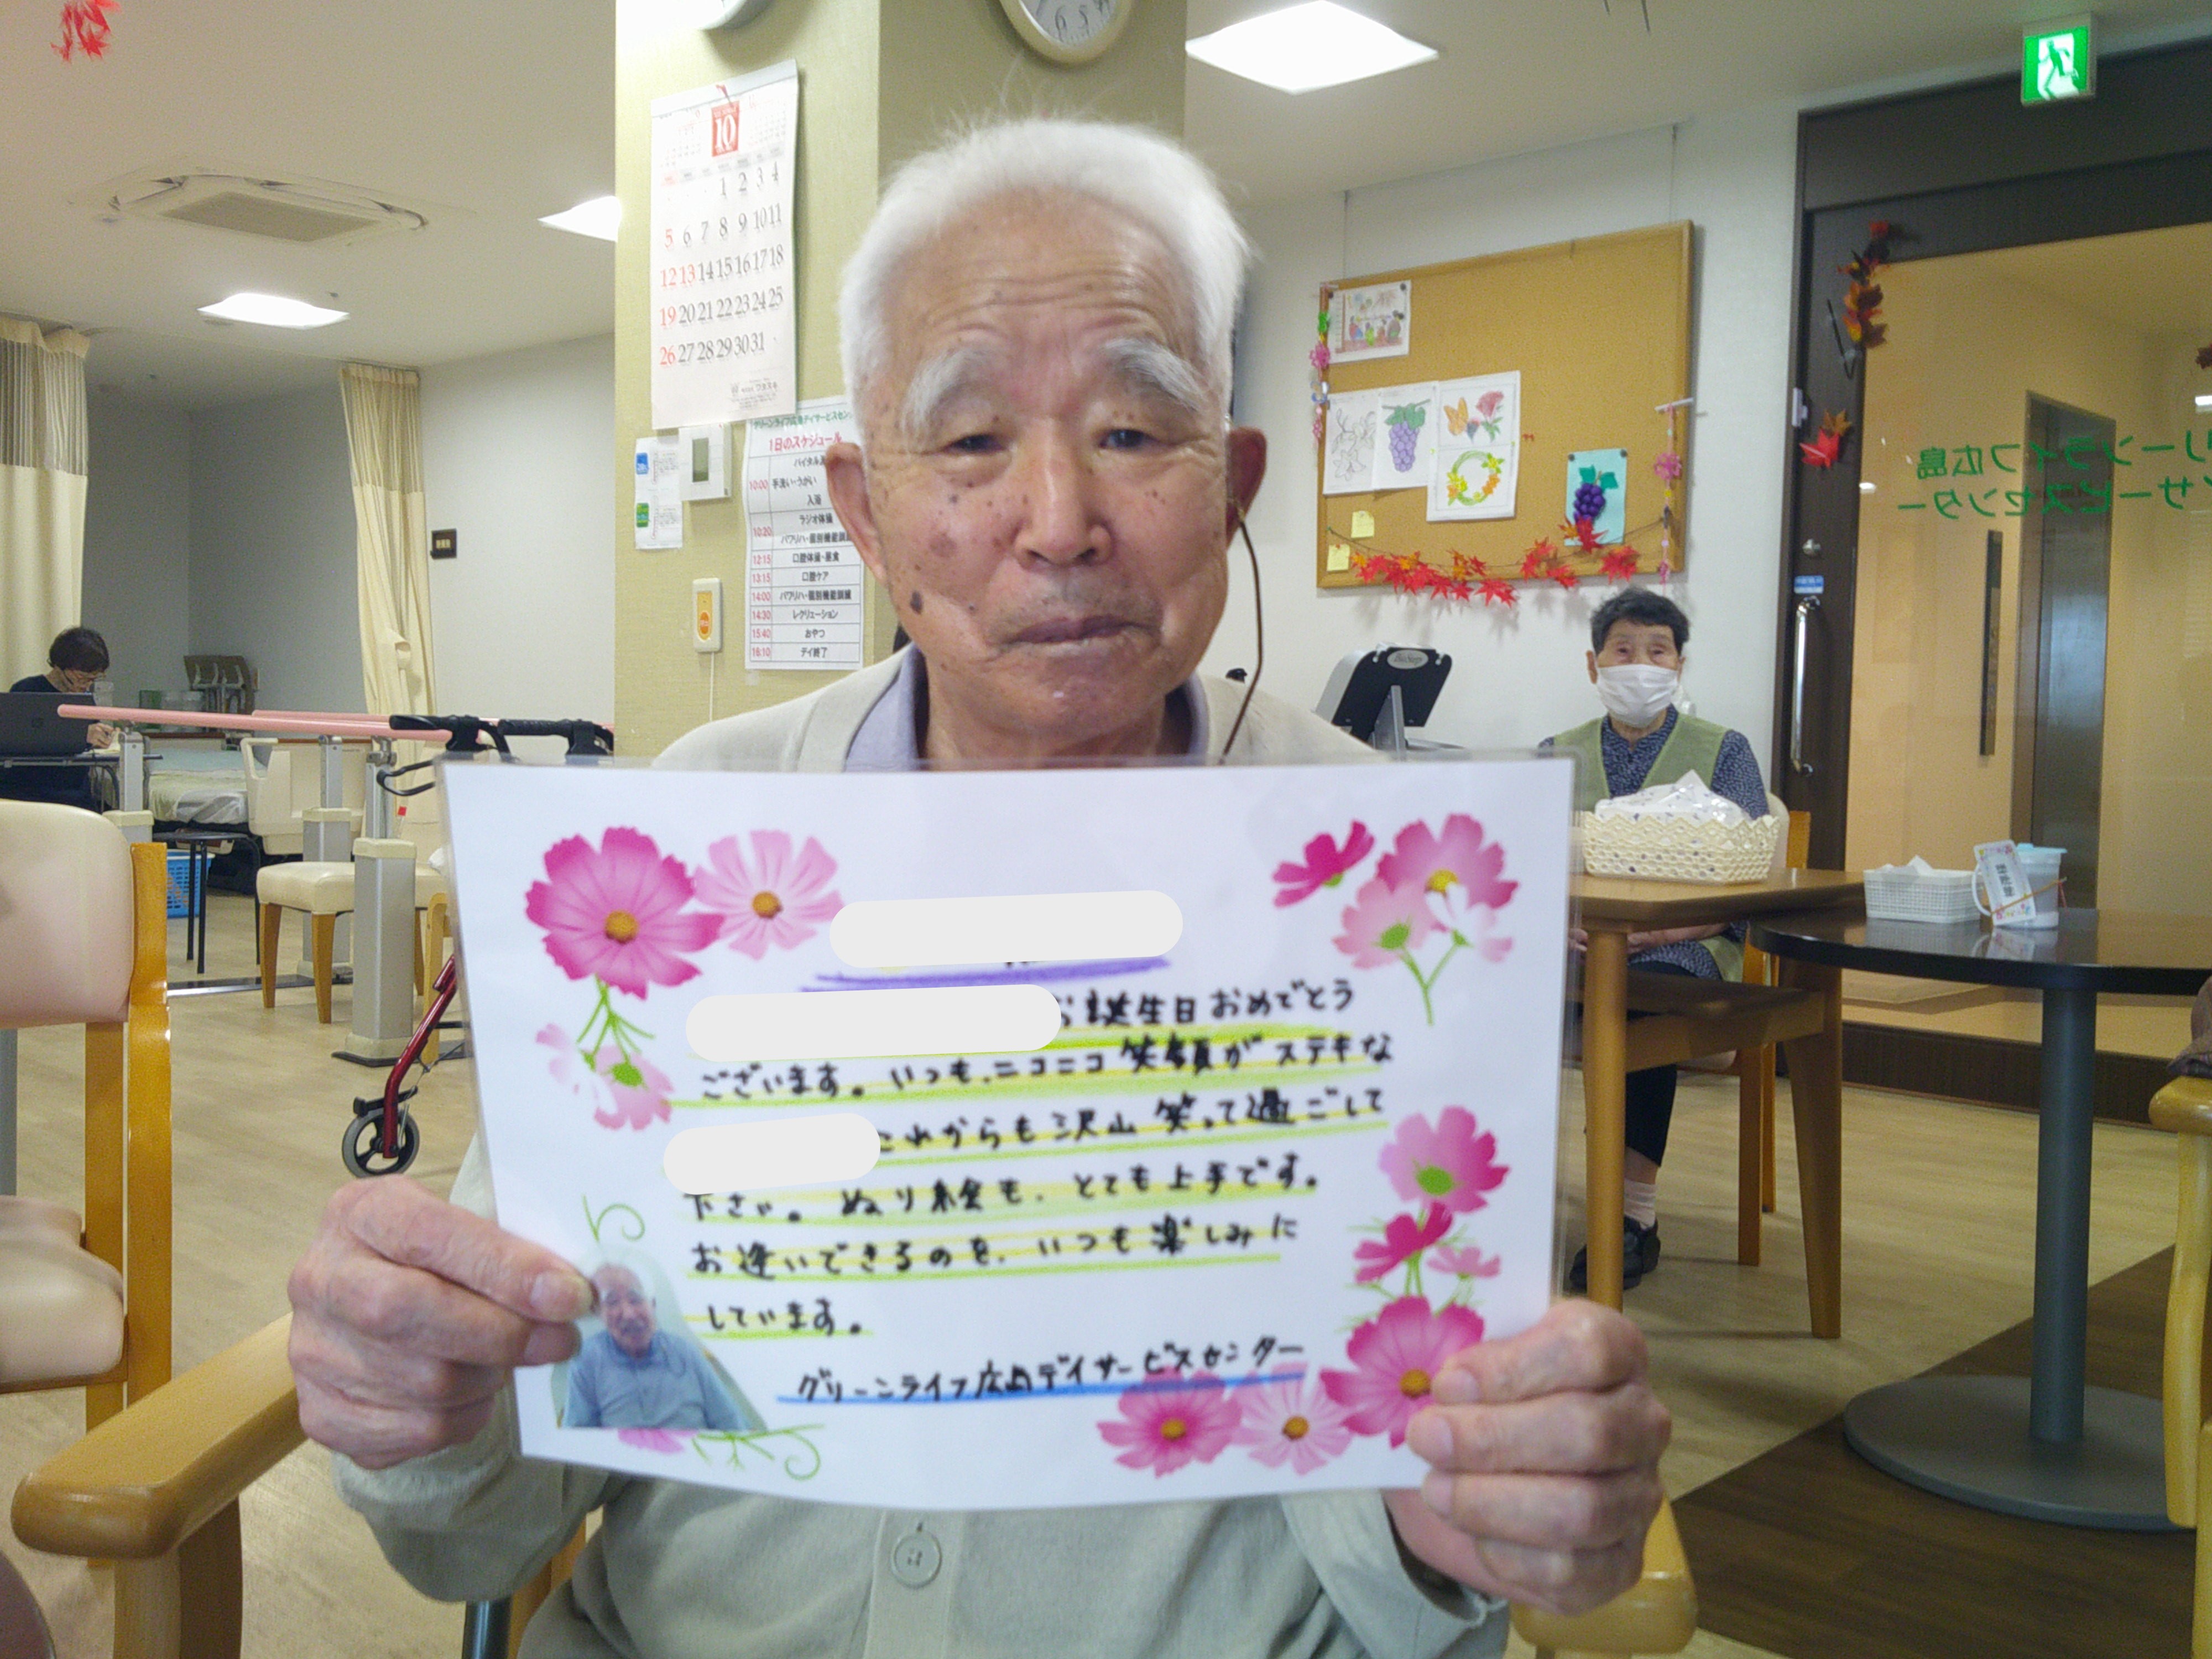 10
1 2 3 4
5 6 7 8 9 10 11
12 13 14 15 16 17 18
19 20 21 22 23 24 25
26 27 28 29 30 31
グリーンライフ広島デイサービスセンター
1日のスケジュール
バイタル
10:00 手洗い・うがい
入浴
10:20 ラジオ体操
パワリハ・個別機能訓練
12:15 口腔体操・昼食
13:15 口腔ケア
14:00 パワリハ・個別機能訓練
14:30 レクリエーション
15:40 おやつ
16:10 デイ終了
リーンライフ広島
イサービスセンター
お誕生日おめでとう
ございます。いつも、ニコニコ笑顔がステキな
これからも沢山笑って過ごして
下さい。ぬり絵も、とても上手です。
お逢いできるのを、いつも楽しみに
しています。
グリーンライフ広島デイサービスセンター